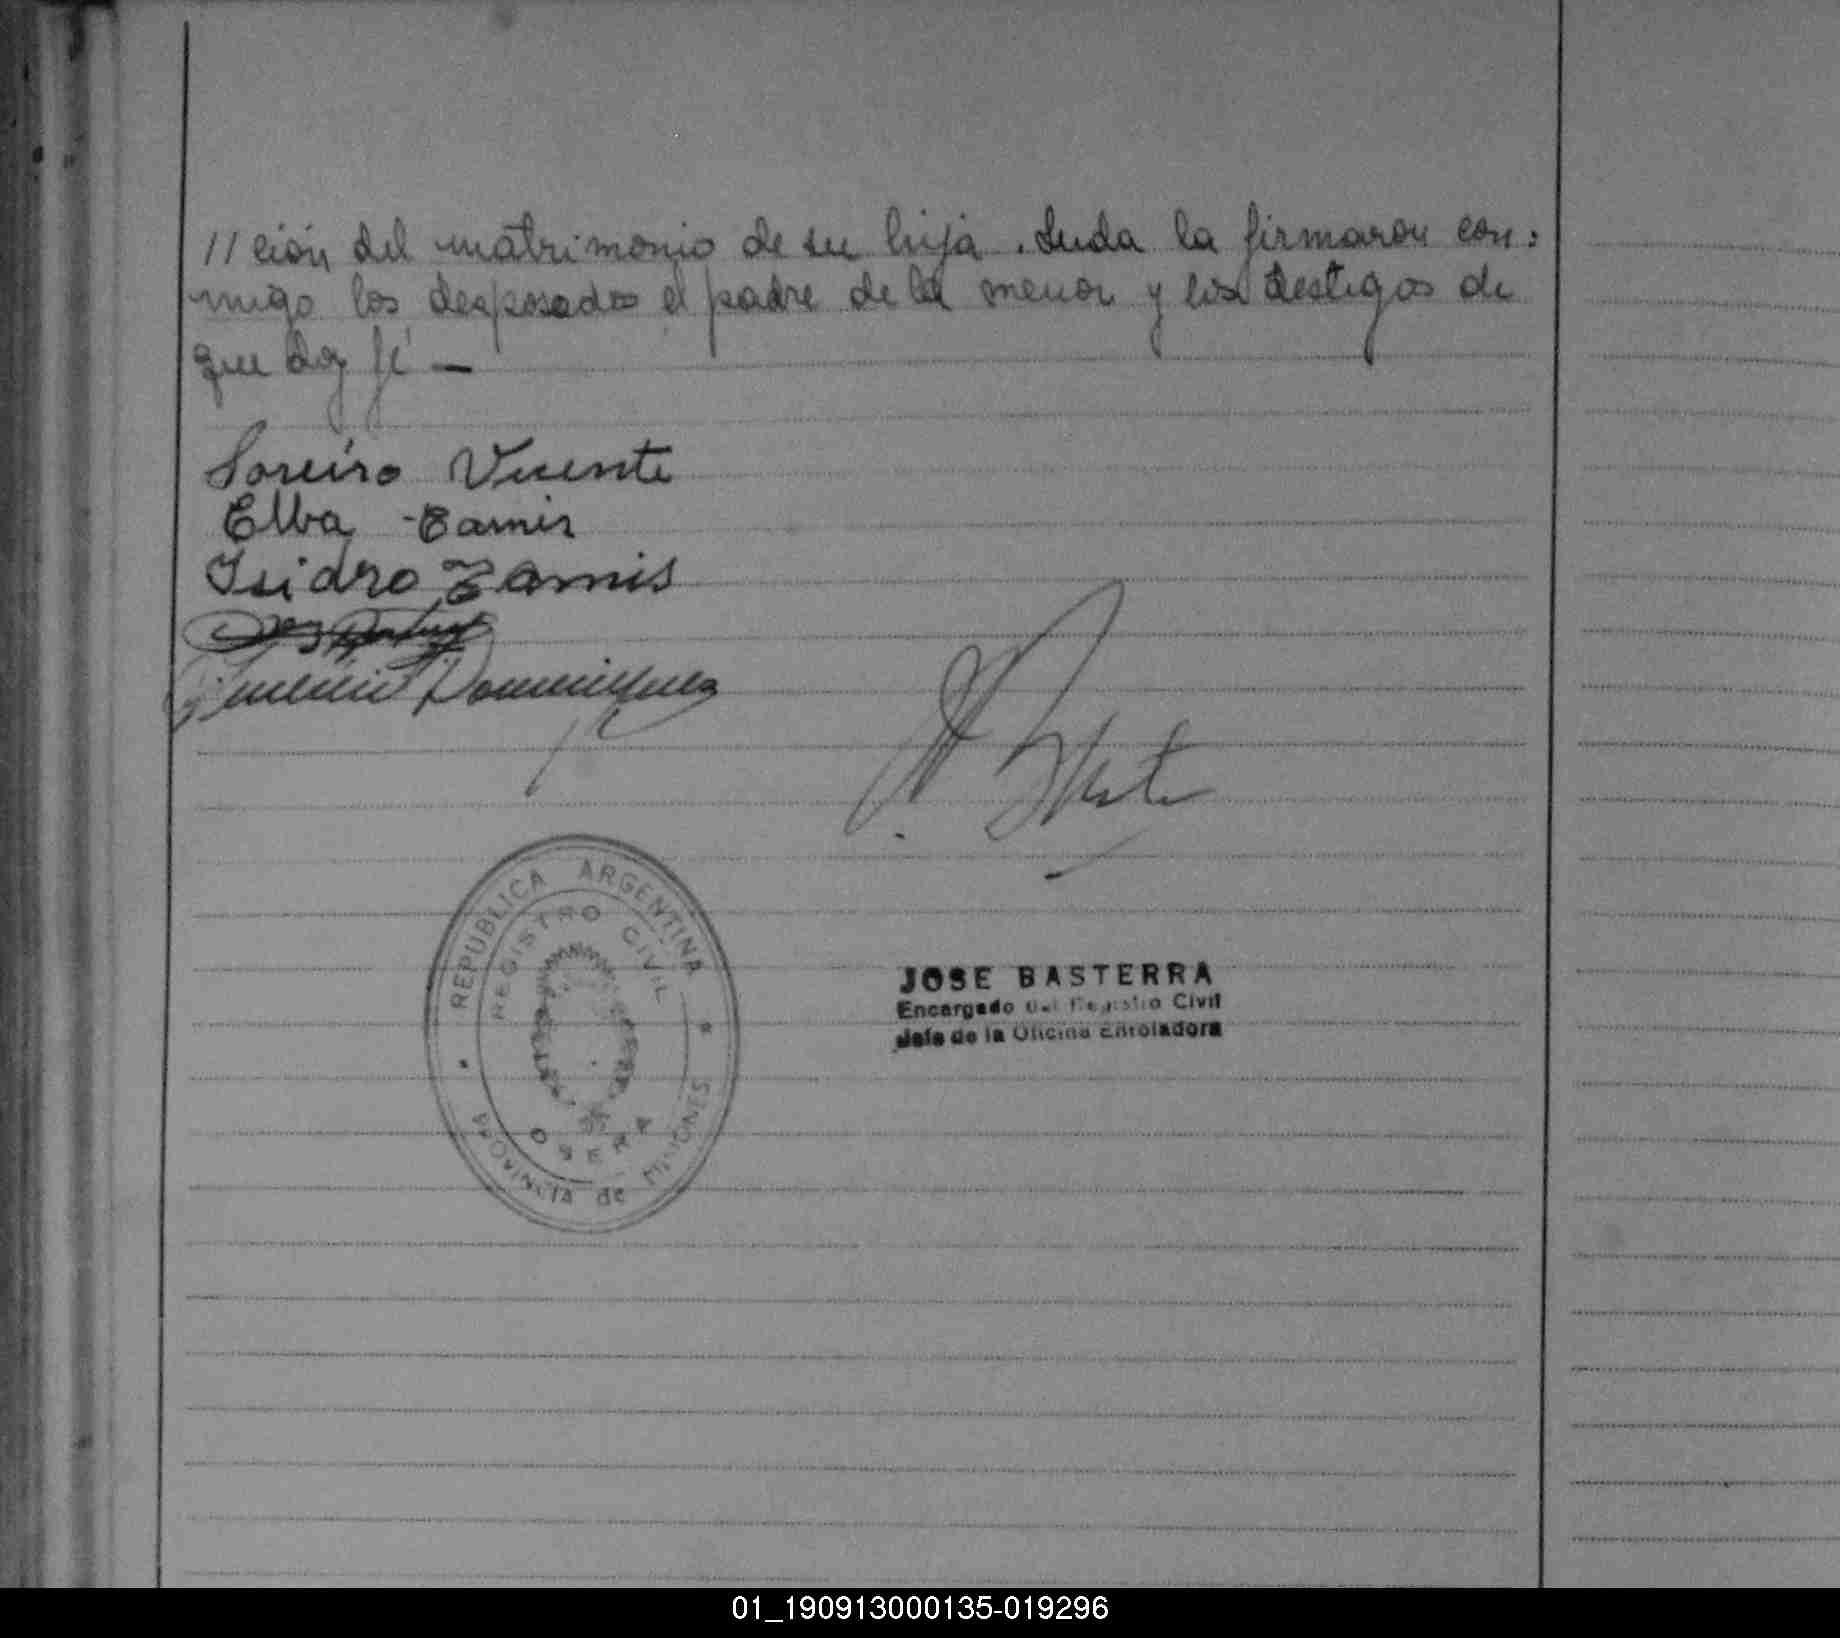 //ción del matrimonio de su hija. Leída la firmaron con:
migo los desposados el padre de la menor y los testigos de
que doy fé —
Vicente
Elba Zamis
Isidro Zamis
Dominguez
REPUBLICA ARGENTINA
REGISTRO CIVIL
OBERA
PROVINCIA de MISIONES
JOSE BASTERRA
Encargado del Registro Civil
Jefe de la Oficina Enroladora
01_190913000135-019296